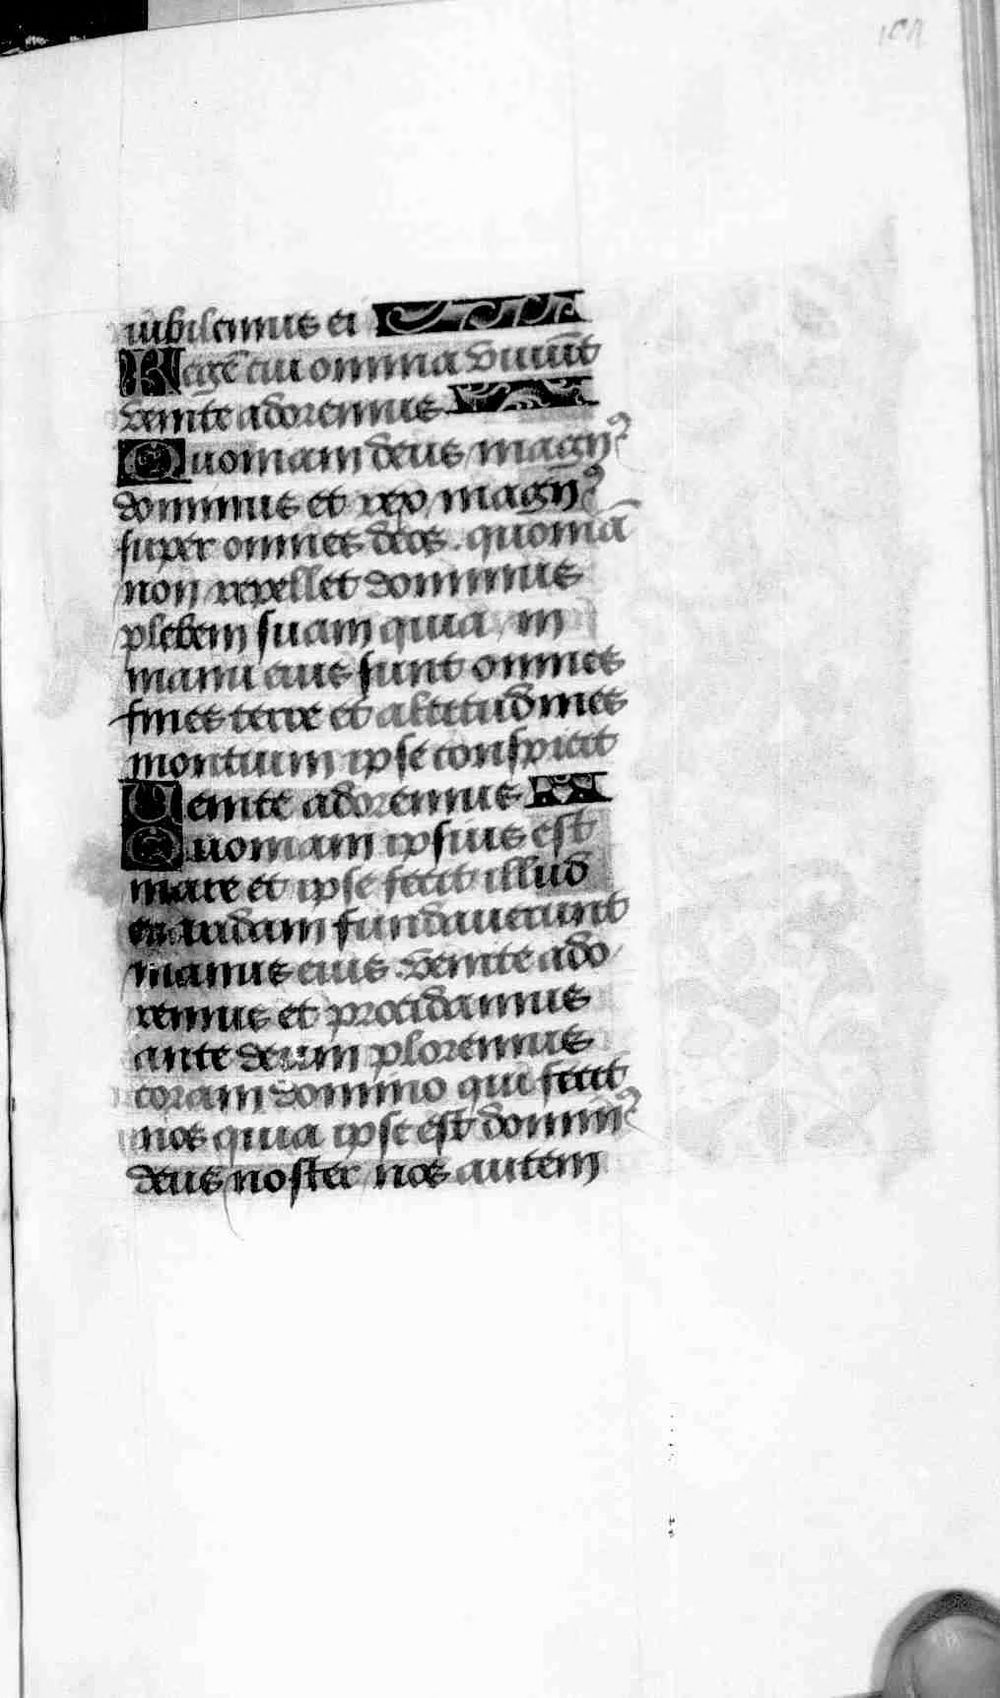 iubilemus ei
Regē cui omnia viuūt
venite adoremus
Quoniam deus magnꝰ
dominus et rex magnꝰ
super omnes deos. quoniā
non repellet dominus
plebem suam quia in
manu eius sunt omnes
fines terre et altitudines
montium ipse conspicit
Venite adoremus
Quoniam ipsius est
mare et ipse fecit illud
et aridam fundauerunt
manus eius. venite ado
remus et procidamus
ante deum ploremus
coram domino qui fecit
nos quia ipse est dominꝰ
deus noster nos autem